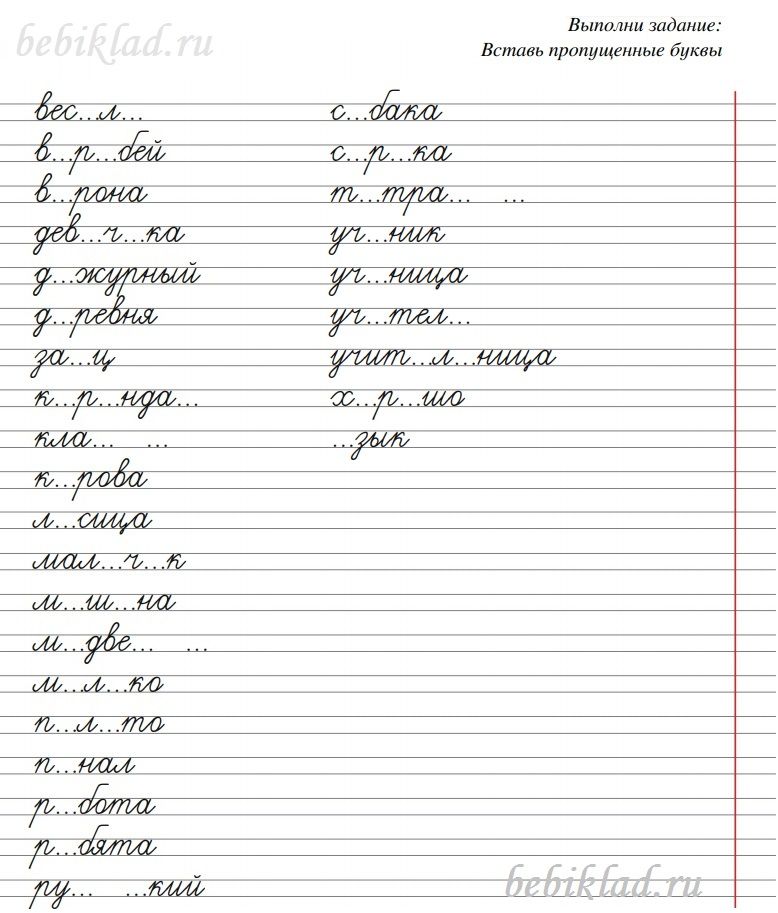 bebiklad.ru
Выполни задание:
Вставь пропущенные буквы
вес...л...
в...р...бей
в...рона
дев...ч...ка
д...журный
д...ревня
за...ц
к...р...нда...
кла... ...
к...рова
л...сица
мал...ч...к
м...ш...на
м...две... ...
м...л...ко
п...л...то
п...нал
р...бота
р...бята
ру... ...кий
с...бака
с...р...ка
т...тра... ...
уч...ник
уч...ница
уч...тел...
учит...л...ница
х...р...шо
...зык
bebiklad.ru